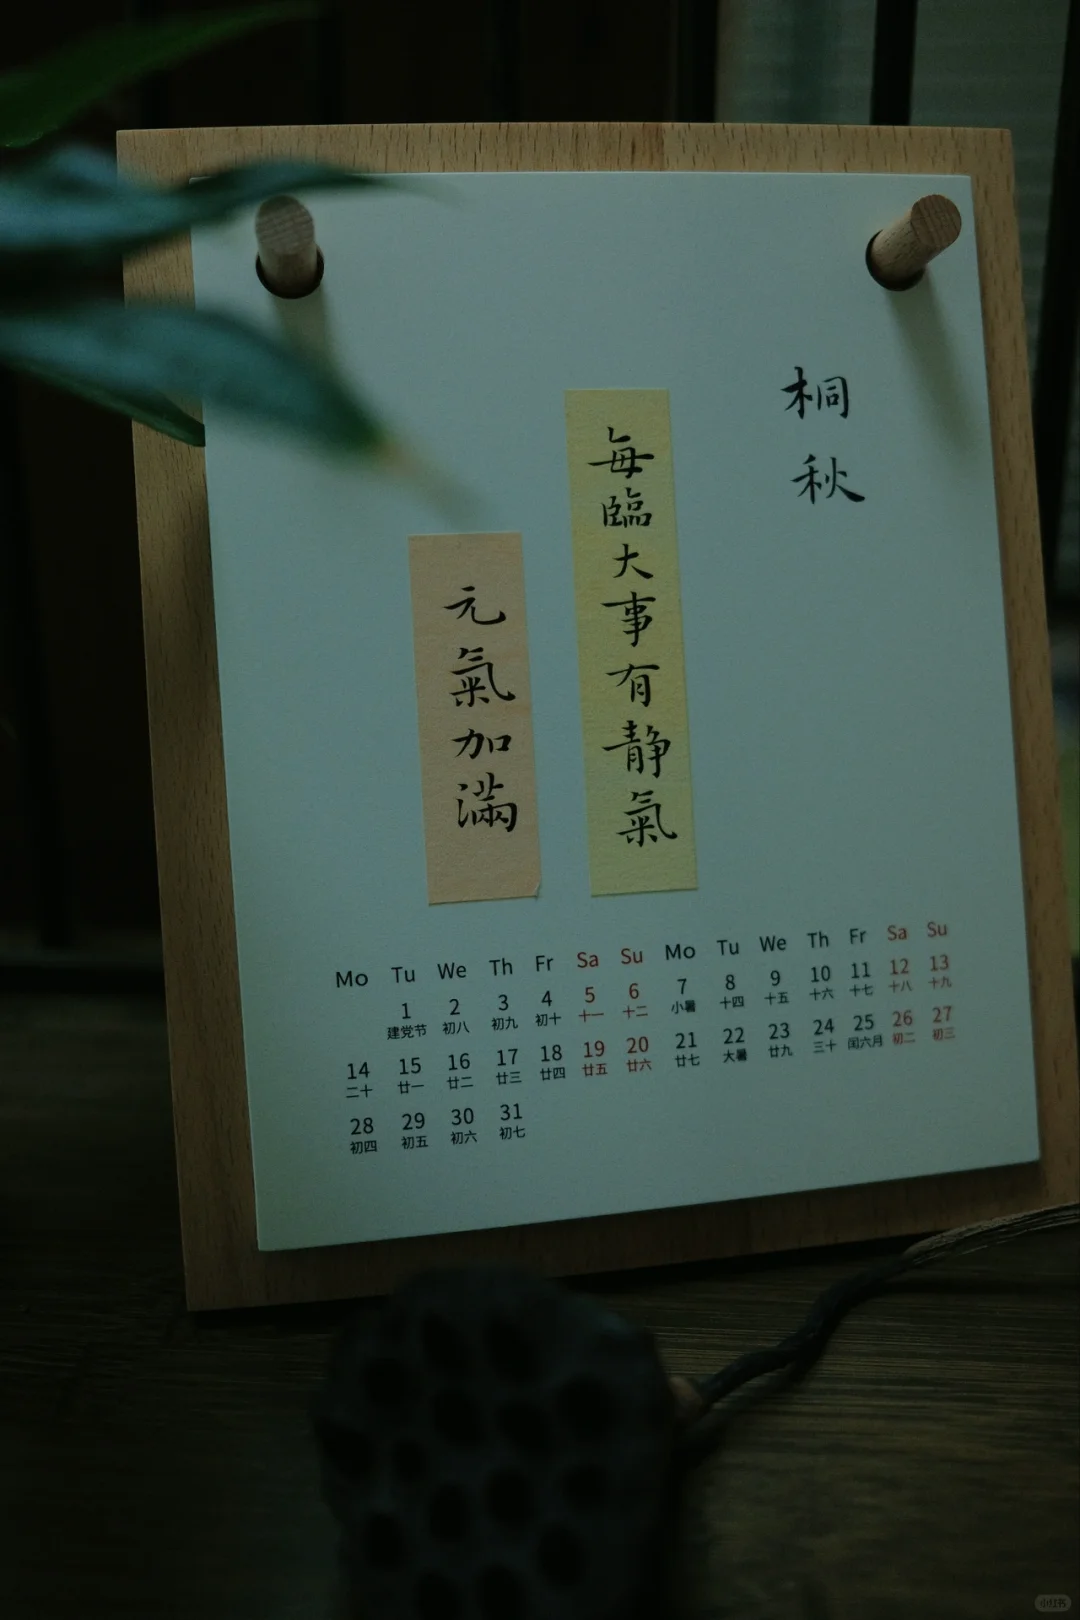 桐秋
每臨大事有静氣
元氣加滿
Mo Tu We Th Fr Sa Su Mo Tu We Th Fr Sa Su
1 2 3 4 5 6 7 8 9 10 11 12 13
建党节 初八 初九 初十 十一 十二 小暑 十四 十五 十六 十七 十八 十九
14 15 16 17 18 19 20 21 22 23 24 25 26 27
二十 廿一 廿二 廿三 廿四 廿五 廿六 廿七 大暑 廿九 三十 闰六月 初二 初三
28 29 30 31
初四 初五 初六 初七
小红书